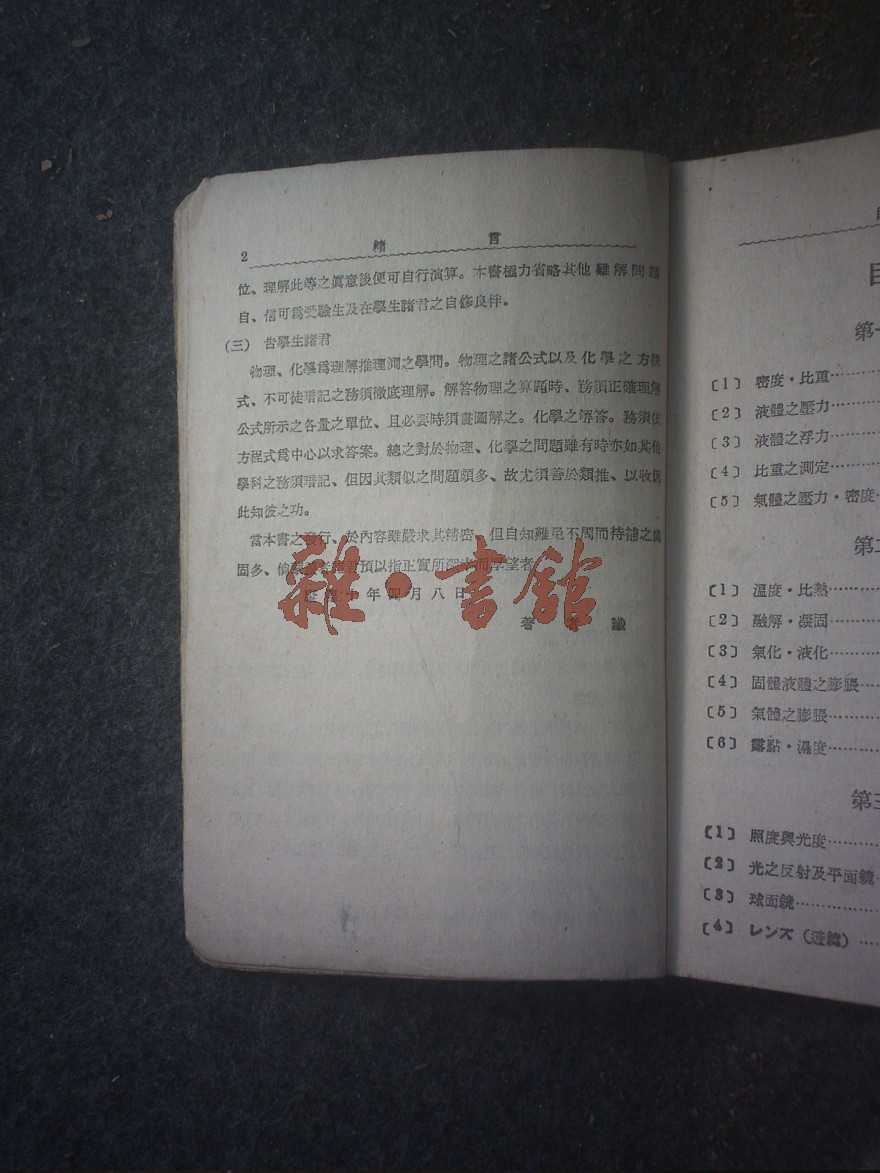 2 緒 言
位、理解此等之眞意後便可自行演算。本書極力省略其他難解問題
自、信可爲受驗生及在學生諸君之自修良伴。
(三) 告學生諸君
物理、化學爲理解推理測之學問。物理之諸公式以及化學之方程
式、不可徒暗記之務須徹底理解。解答物理之算題時、務須正確理解
公式所示之各量之單位、且必要時須畫圖解之。化學之解答。務須依
方程式爲中心以求答案。總之對於物理、化學之問題雖有時亦如其他
學科之務須暗記、但因其類似之問題頗多、故尤須善於類推、以收因
此知彼之功。
當本書之發行、於內容雖嚴求其精密、但自知難免不周而待補之處
固多、倘 諸君預以指正實所深 而 望者
十年四月八日
著 者 識
雜·書館
第一
〔1〕 密度・比重
〔2〕 液體之壓力
〔3〕 液體之浮力
〔4〕 比重之測定
〔5〕 氣體之壓力・密度
第二
〔1〕 溫度・比熱
〔2〕 融解・凝固
〔3〕 氣化・液化
〔4〕 固體液體之膨脹
〔5〕 氣體之膨脹
〔6〕 露點・濕度
第三
〔1〕 照度與光度
〔2〕 光之反射及平面鏡
〔3〕 球面鏡
〔4〕 レンズ(透鏡)